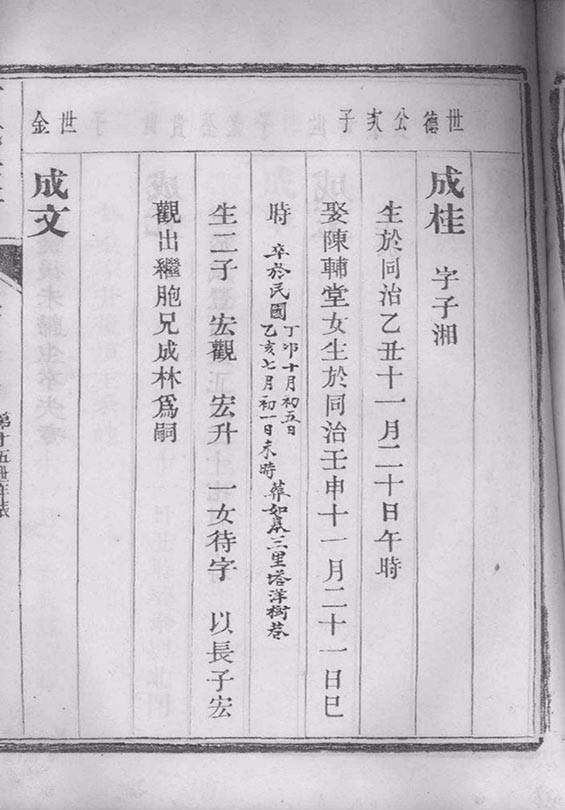 世德公亥子
成桂 字子湘
生於同治乙丑十一月二十日午時
娶陳輔堂女生於同治壬申十一月二十一日巳
時 卒於民國丁卯十月初五日
乙亥七月初一日未時 葬如皋三里塔洋樹巷
生二子 宏觀 宏升 一女待字 以長子宏
觀出繼胞兄成林爲嗣
世金
成文
第十五冊年表